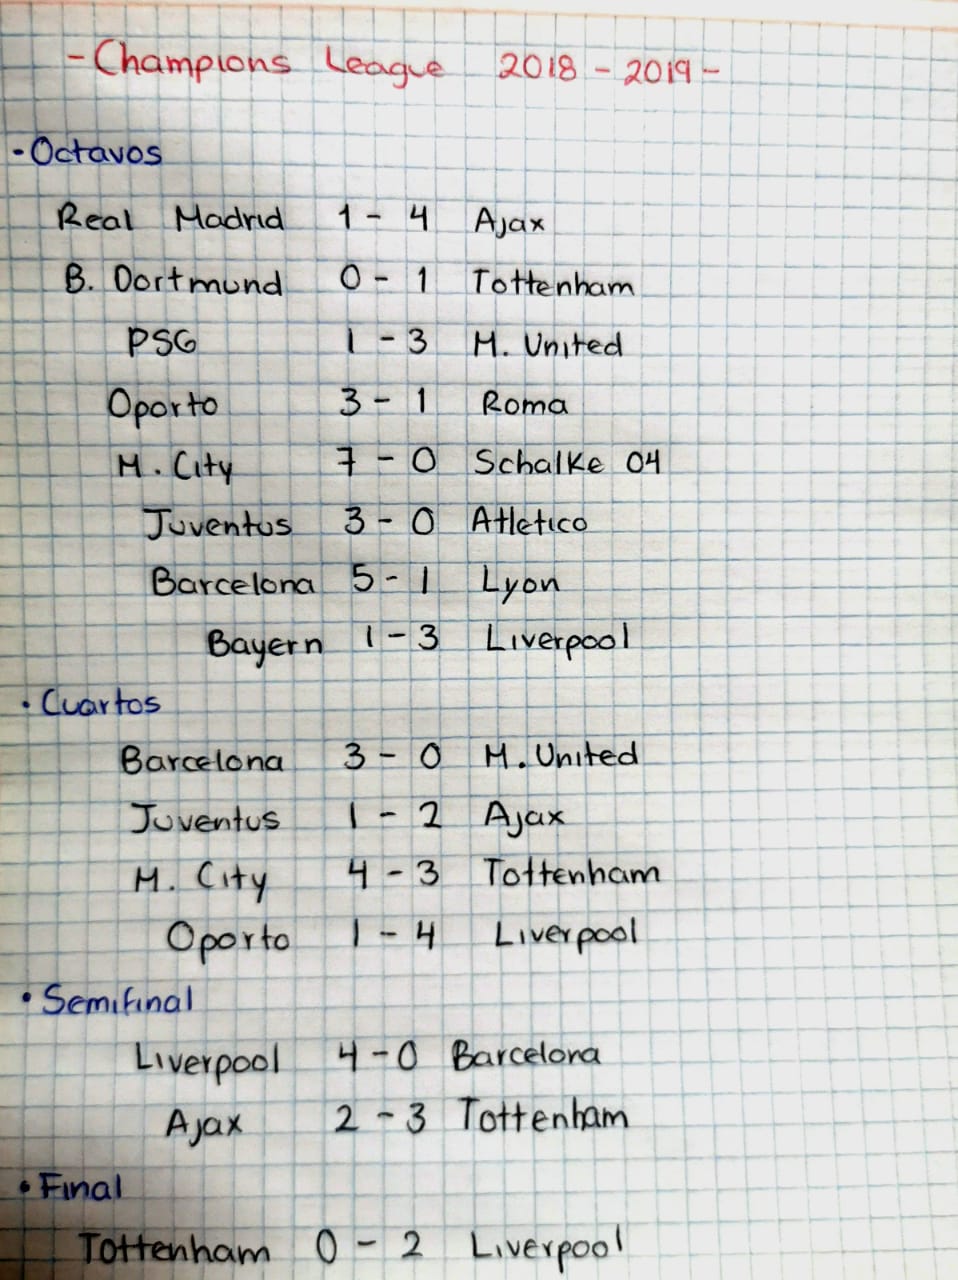 - Champions League 2018 - 2019 -
• Octavos
Real Madrid 1 - 4 Ajax
B. Dortmund 0 - 1 Tottenham
PSG 1 - 3 M. United
Oporto 3 - 1 Roma
M. City 7 - 0 Schalke 04
Juventus 3 - 0 Atletico
Barcelona 5 - 1 Lyon
Bayern 1 - 3 Liverpool
• Cuartos
Barcelona 3 - 0 M. United
Juventus 1 - 2 Ajax
M. City 4 - 3 Tottenham
Oporto 1 - 4 Liverpool
• Semifinal
Liverpool 4 - 0 Barcelona
Ajax 2 - 3 Tottenham
• Final
Tottenham 0 - 2 Liverpool